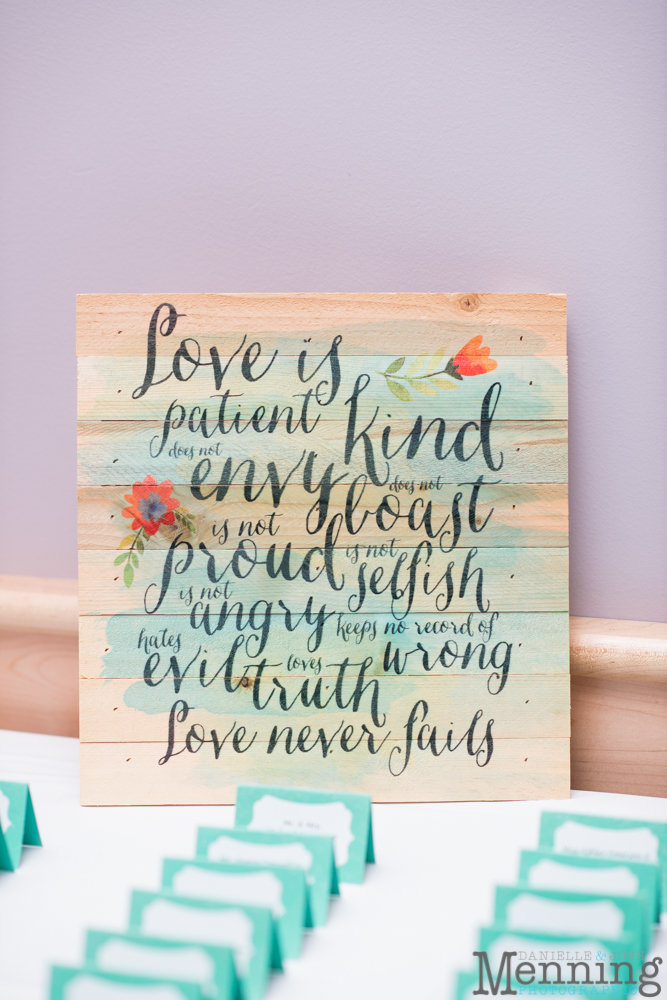 Love is
patient kind
does not envy does not boast
is not proud is not selfish
is not angry keeps no record of wrong
hates evil loves truth
Love never fails
Mr. & Mrs.
DANIELLE &
Menning
PHOTOGRAPHY